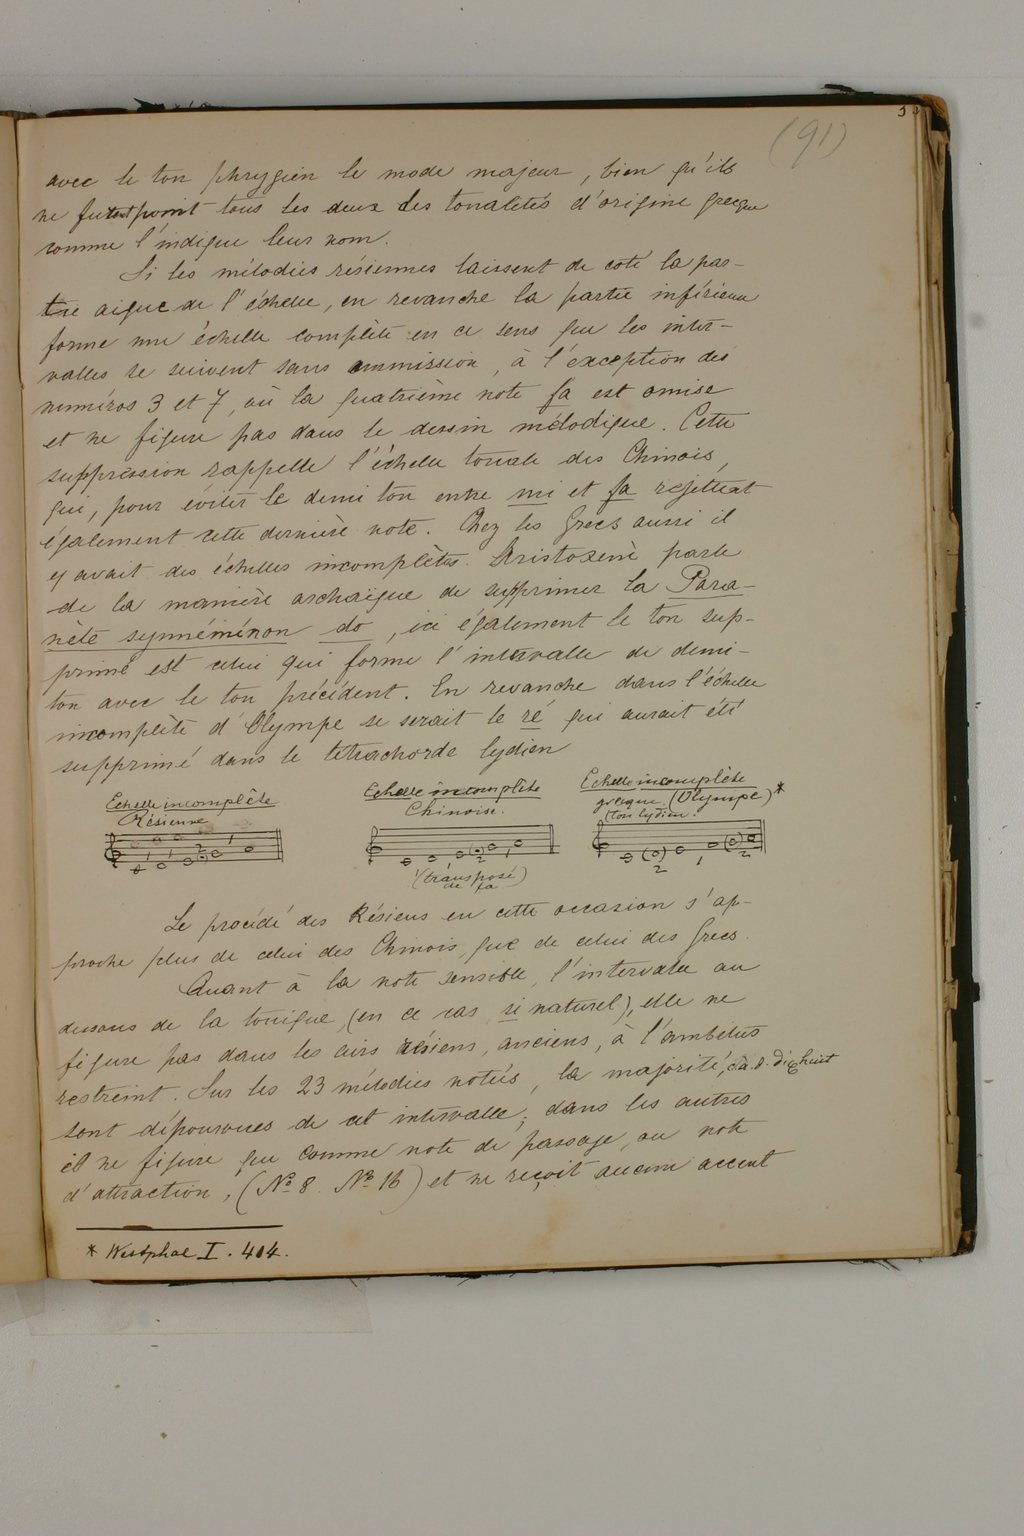 (91)
avec le ton phrygien le mode majeur, bien qu'ils
ne futent point tous les deux des tonaletés d'origine grecque
comme l'indique leur nom.
Si les mélodies résiennes laissent de coté la par-
tie aigue de l'échelle, en revanche la partie inférieure
forme une échelle complète en ce sens que les inter-
valles se suivent sans ommission, à l'exception des
numéros 3 et 7, où la quatrième note fa est omise
et ne figure pas dans le dessin mélodique. Cette
suppression rappelle l'échelle tonale des Chinois,
qui, pour éviter le demi ton entre mi et fa rejettent
également cette dernière note. Chez les Grecs aussi il
y avait des échelles incomplètes. Aristoxène parle
de la manière archaïque de supprimer la Para-
nète synnéménon do, ici également le ton sup-
primé est celui qui forme l'intervalle de demi-
ton avec le ton précédent. En revanche dans l'échelle
incomplète d'Olympe se serait le ré qui aurait été
supprimé dans le tétrachorde lydien
Echelle incomplète
Résienne
Echelle incomplète
Chinoise.
(transposé
de fa)
Echelle incomplète
grecque (Olympe)*
(ton lydien.
Le procédé des Résiens en cette occasion s'ap-
proche plus de celui des Chinois, que de celui des Grecs.
Quant à la note sensible, l'intervalle au
dessous de la tonique (en ce cas si naturel), elle ne
figure pas dans les airs résiens, anciens, à l'ambitus
restreint. Sur les 23 mélodies notées, la majorité, c.à.d. dixhuit
sont dépourvues de cet intervalle; dans les autres
il ne figure que comme note de passage, ou note
d'attraction, (No 8. No 16) et ne reçoit aucun accent
* Westphal I. 414.